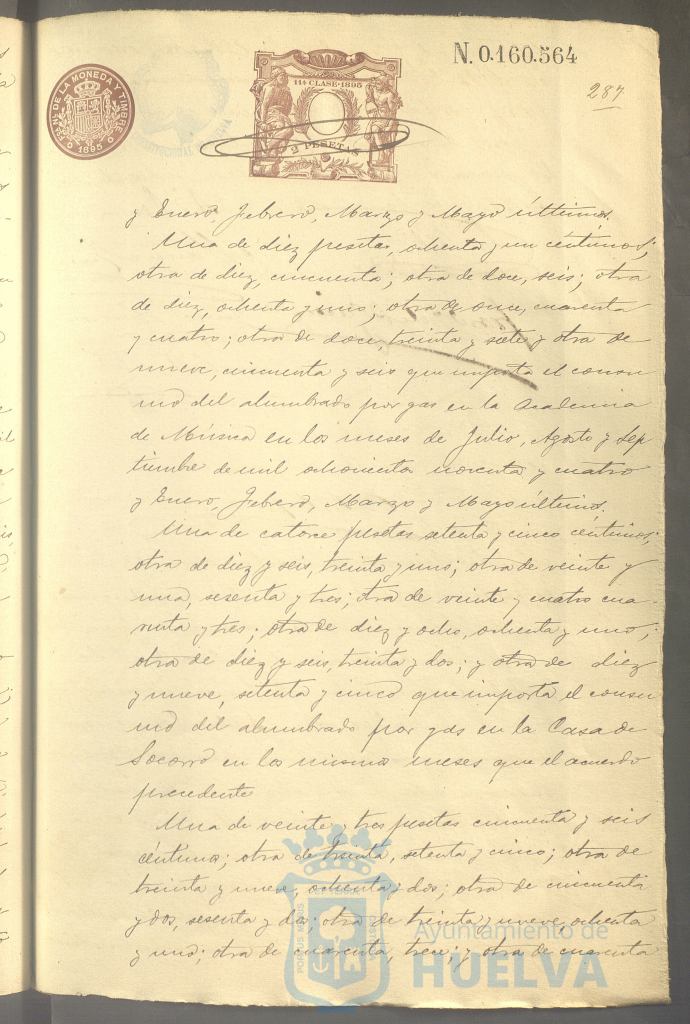 N. 0.160.564
FÁB. NAL. DE LA MONEDA Y TIMBRE
1895
11ª CLASE-1895
2 PESETAS
287
y Enero, Febrero, Marzo y Mayo últimos.
Una de diez pesetas, ochenta y un céntimos;
otra de diez, cincuenta; otra de doce, seis; otra
de diez, ochenta y uno; otra de once, cuarenta
y cuatro; otra de doce, treinta y siete y otra de
nueve, cincuenta y seis que importa el consu
mo del alumbrado por gas en la Academia
de Música en los meses de Julio, Agosto y Sep
tiembre de mil ochocientos noventa y cuatro
y Enero, Febrero, Marzo y Mayo últimos.
Una de catorce pesetas setenta y cinco céntimos;
otra de diez y seis, treinta y uno; otra de veinte y
una, sesenta y tres; otra de veinte y cuatro cua-
renta y tres; otra de diez y ocho, ochenta y uno;
otra de diez y seis, treinta y dos; y otra de diez
y nueve, setenta y cinco que importa el consu
mo del alumbrado por gas en la Casa de
Socorro en los mismos meses que el acuerdo
precedente
Una de veinte y tres pesetas cincuenta y seis
céntimos; otra de treinta, setenta y cinco; otra de
treinta y nueve, ochenta y dos; otra de cincuenta
y dos, sesenta y dos; otra de treinta y nueve, ochenta
y uno; otra de cuarenta, trece; y otra de cuarenta
Ayuntamiento de
HUELVA